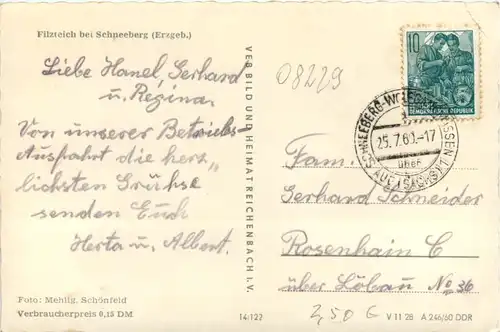 Filzteich bei Schneeberg (Erzgeb.)
Liebe Hanel, Gerhard
u. Regina,
Von unserer Betriebs-
Ausfahrt die herz„
lichsten Grühse
senden Euch
Herta u. Albert.
Foto: Mehlig, Schönfeld
Verbraucherpreis 0,15 DM
VEB BILD UND HEIMAT REICHENBACH I. V.
14/122
08229
10
DEUTSCHE DEMOKRATISCHE REPUBLIK
SCHNEEBERG-
25.7.60.-17
über
AUE (SACHS)
Fam.
Gerhard Schneider
Rosenhain C
über Löbau No 36
2,50 €
V 11 28 A 246/60 DDR